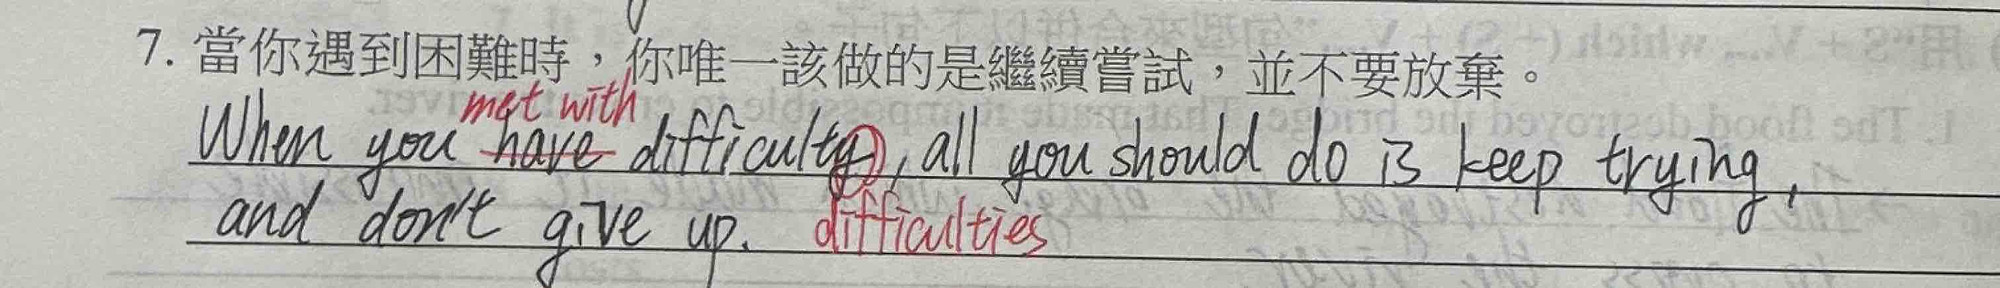 7. 當你遇到困難時，你唯一該做的是繼續嘗試，並不要放棄。
met with
When you have difficulty, all you should do is keep trying,
and don't give up. difficulties